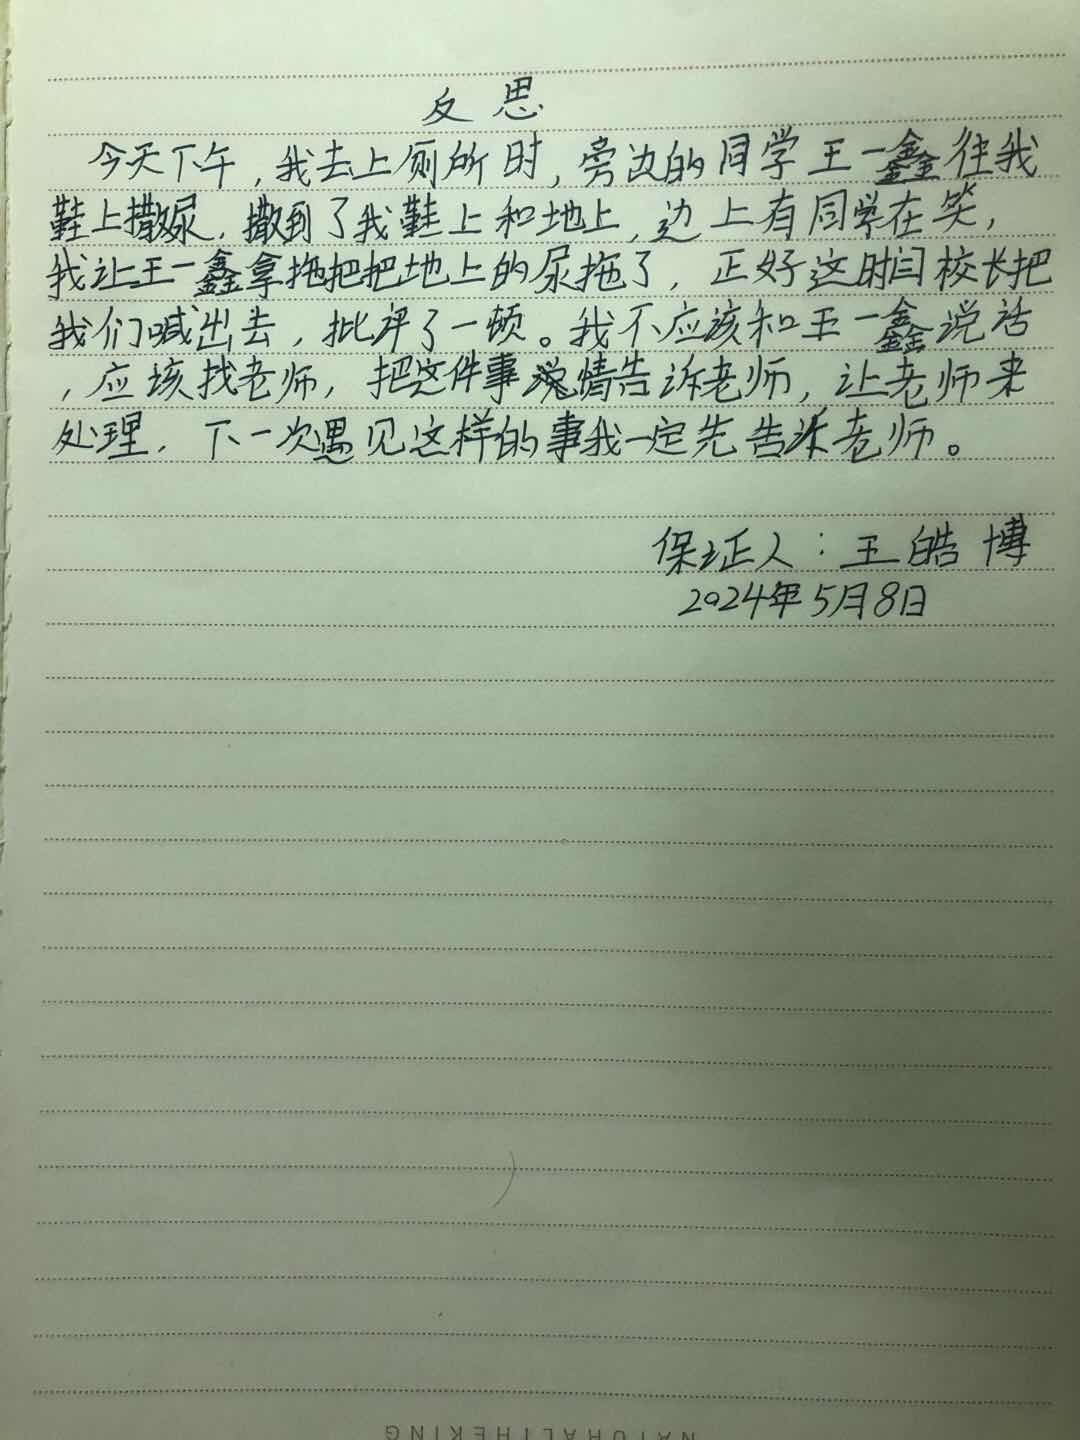 反思
今天下午，我去上厕所时，旁边的同学王一鑫往我
鞋上撒尿，撒到了我鞋上和地上，边上有同学在笑，
我让王一鑫拿拖把把地上的尿拖了，正好这时闫校长把
我们喊出去，批评了一顿。我不应该和王一鑫说话
，应该找老师，把这件事情告诉老师，让老师来
处理，下一次遇见这样的事我一定先告诉老师。
保证人：王皓博
2024年5月8日
NATURALTHEKING